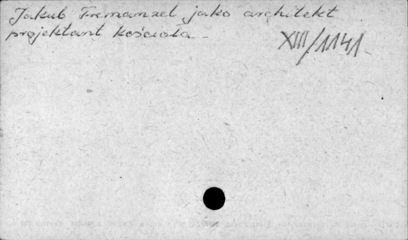 Jakub Fremanzel jako architekt
projektant kościoła
XIII/1141